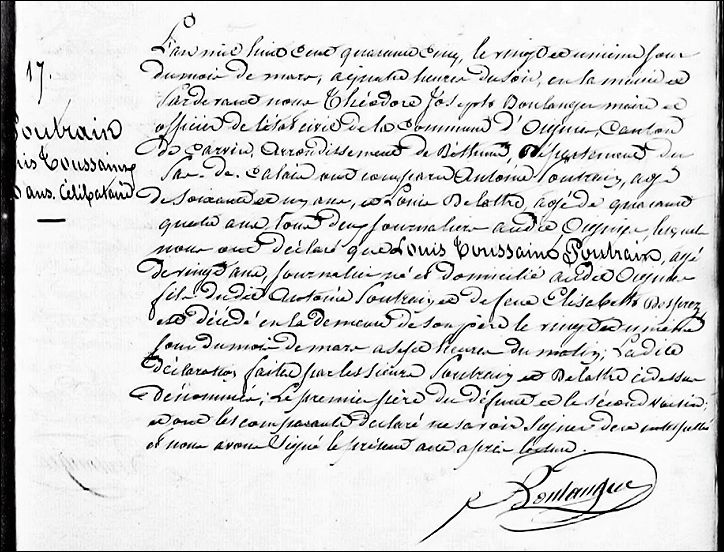 17.
Poutrain
Louis Toussaint
ans. Célibataire
L'an mil huit cent quarante cinq, le vingt et unième jour
du mois de mars, à quatre heures du soir, en la mairie et
Pardevant nous Théodore Joseph Boulanger maire et
officier de l'état civil de la Commune d'Oignies, Canton
de Carvin, Arrondissement de Béthune, Département du
Pas-de-Calais ont comparu Antoine Poutrain, agé
de soixante et un ans, et Louis Delattre, agé de quarante
quatre ans, tous deux journaliers audit Oignies, lesquels
nous ont déclaré que Louis Toussaint Poutrain, agé
de vingt ans, journalier né et domicilié audit Oignies
fils dudit Antoine Poutrain et de feue Elisabeth Desprez
est décédé en la demeure de son père le vingt et unième
jour du mois de mars à sept heures du matin; Ladite
déclaration faite par les sieurs Poutrain et Delattre cidessus
dénommés; Le premier père du défunt et le second voisin;
et ont les comparants déclaré ne savoir signer de ce interpellé
et nous avons signé le présent acte après lecture.
Boulanger